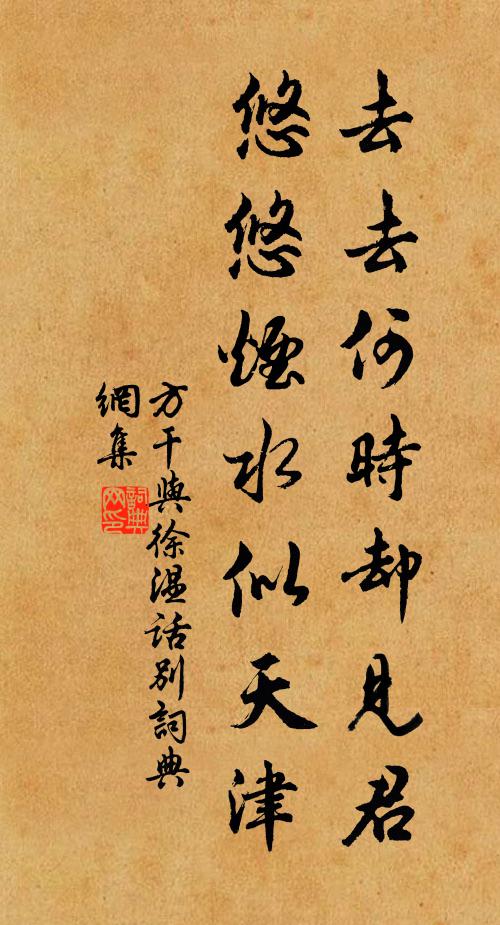 去去何時却見君
悠悠煙水似天津
方干與徐溫話別詞典
網集
詞典网印